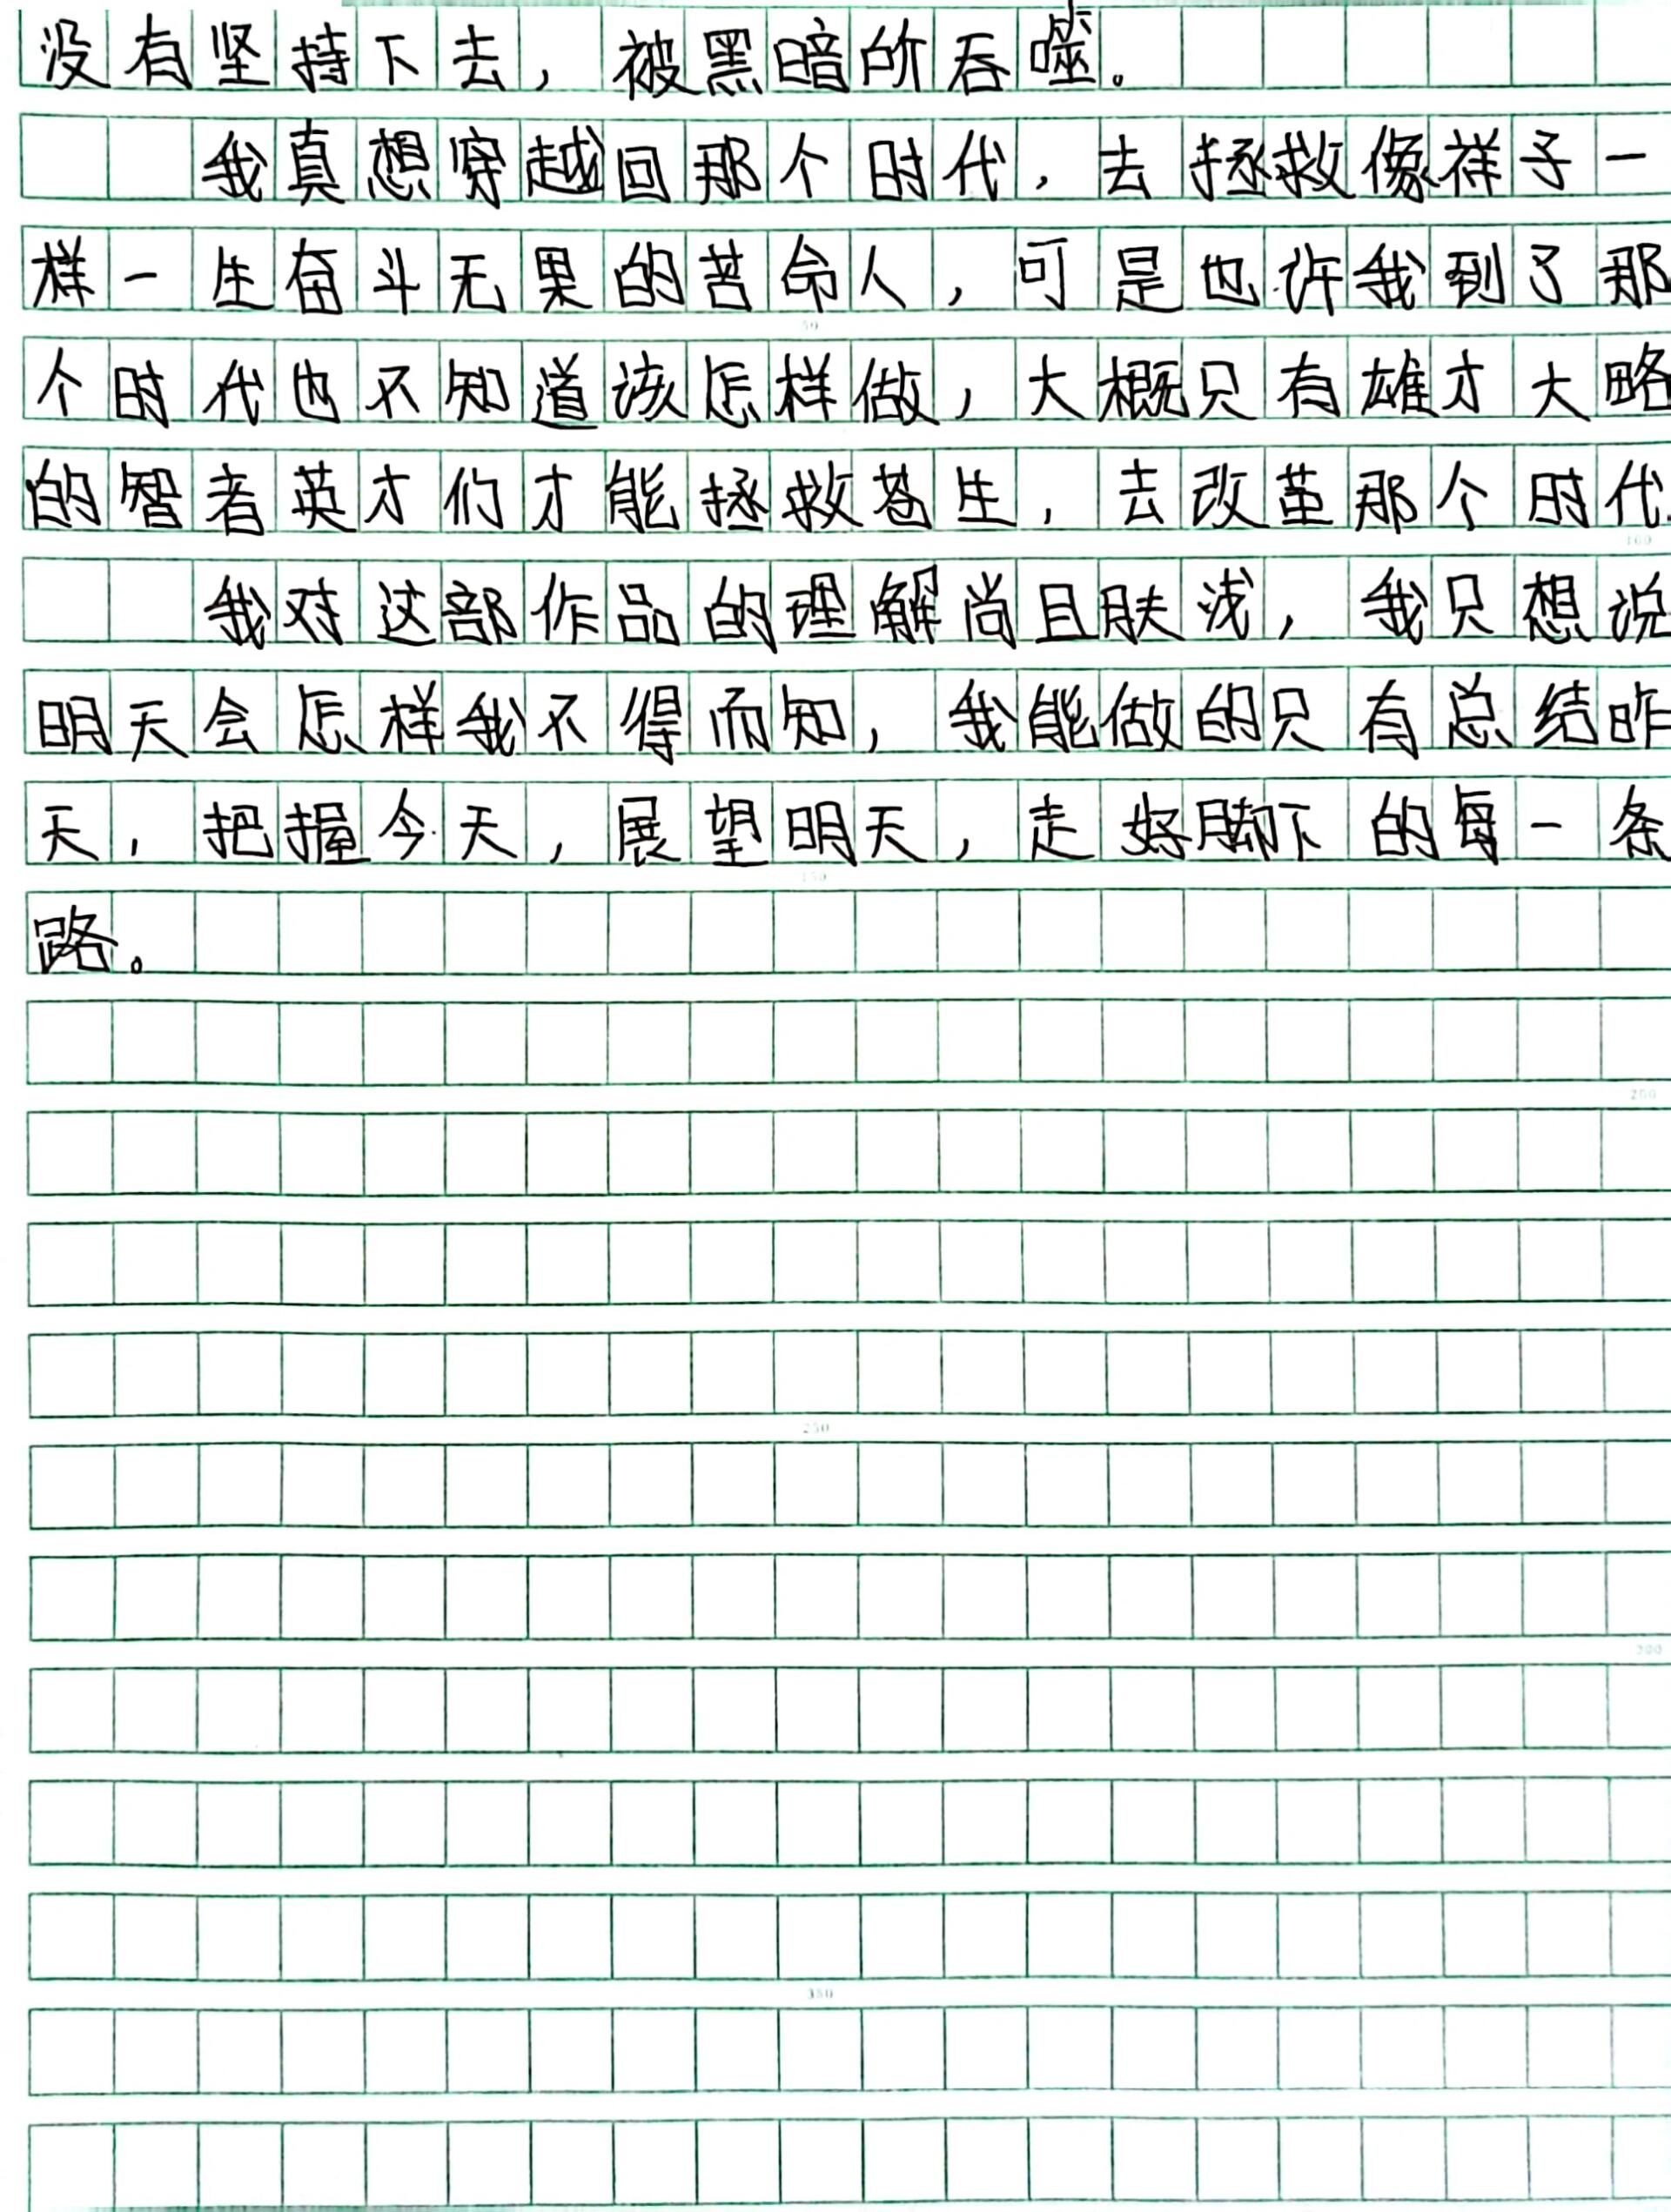 没有坚持下去，被黑暗所吞噬。
我真想穿越回那个时代，去拯救像祥子一
样一生奋斗无果的苦命人，可是也许我到了那
50
个时代也不知道该怎样做，大概只有雄才大略
的智者英才们才能拯救苍生，去改革那个时代.
100
我对这部作品的理解尚且肤浅，我只想说
明天会怎样我不得而知，我能做的只有总结昨
天，把握今天，展望明天，走好脚下的每一条
150
路。
200
250
300
350